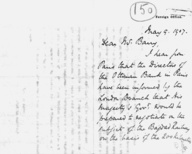 150
Foreign Office
May 8. 1907.
Dear Mr. Barry,
I hear from
Paris that the Directors of
the Ottoman Bank in Paris
have been informed by the
London Branch that His
Majesty's Govt. would be
prepared to negotiate on the
subject of the Bagdad Railway
on the basis of the